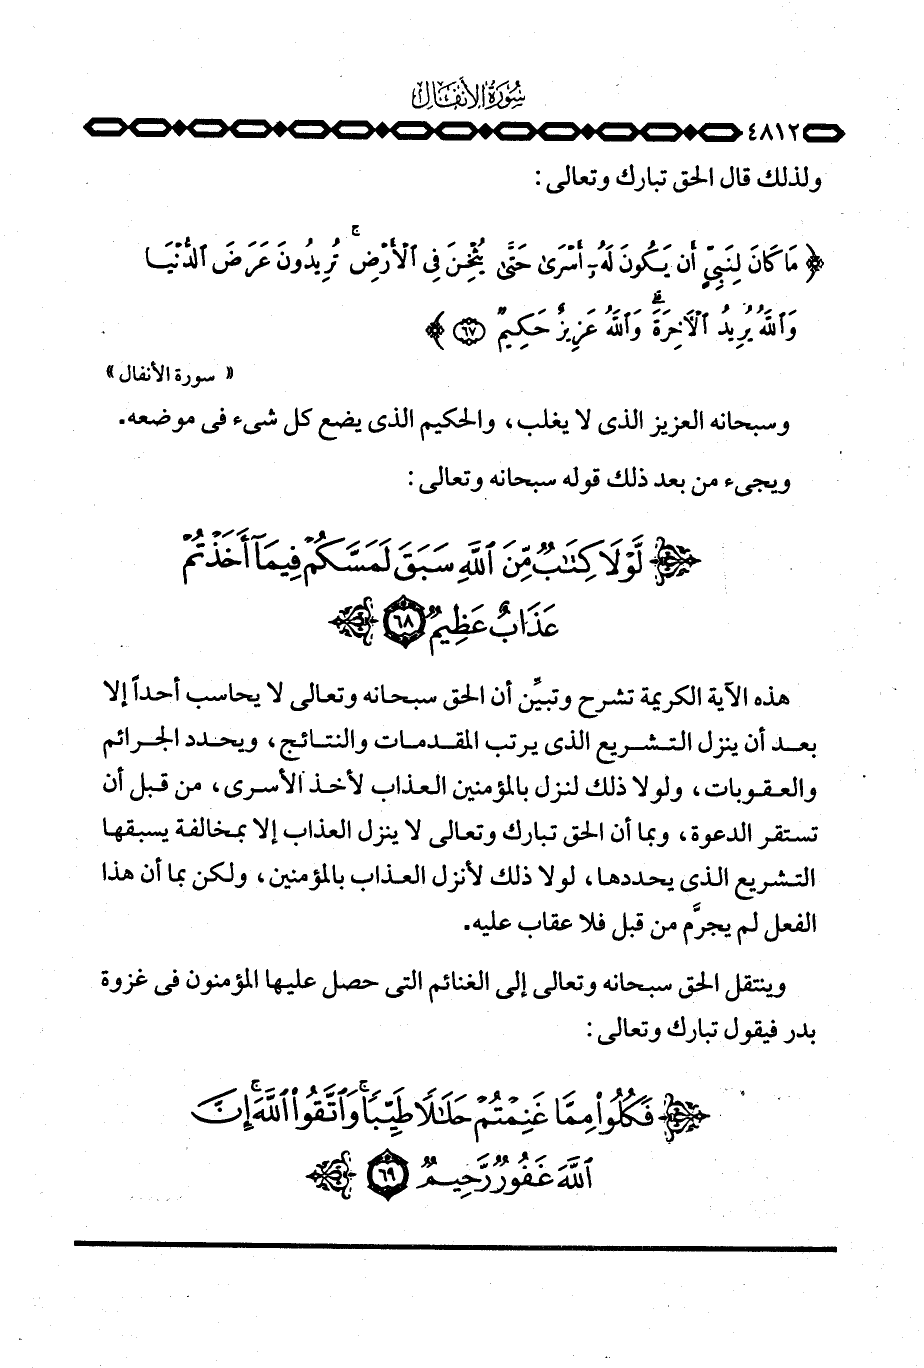 سُورَةُ الأَنفَالِ
٤٨١٢
ولذلك قال الحق تبارك وتعالى :
﴿ مَا كَانَ لِنَبِيٍّ أَن يَكُونَ لَهُۥٓ أَسْرَىٰ حَتَّىٰ يُثْخِنَ فِى ٱلْأَرْضِ ۚ تُرِيدُونَ عَرَضَ ٱلدُّنْيَا
وَٱللَّهُ يُرِيدُ ٱلْـَٔاخِرَةَ ۗ وَٱللَّهُ عَزِيزٌ حَكِيمٌ ﴿٦٧﴾ ﴾
« سورة الأنفال »
وسبحانه العزيز الذى لا يغلب، والحكيم الذى يضع كل شىء فى موضعه.
ويجىء من بعد ذلك قوله سبحانه وتعالى :
﴿ لَّوْلَا كِتَٰبٌ مِّنَ ٱللَّهِ سَبَقَ لَمَسَّكُمْ فِيمَآ أَخَذْتُمْ
عَذَابٌ عَظِيمٌ ﴿٦٨﴾ ﴾
هذه الآية الكريمة تشرح وتبيِّن أن الحق سبحانه وتعالى لا يحاسب أحداً إلا
بعد أن ينزل التشريع الذى يرتب المقدمات والنتائج، ويحدد الجرائم
والعقوبات، ولولا ذلك لنزل بالمؤمنين العذاب لأخذ الأسرى، من قبل أن
تستقر الدعوة، وبما أن الحق تبارك وتعالى لا ينزل العذاب إلا بمخالفة يسبقها
التشريع الذى يحددها، لولا ذلك لأنزل العذاب بالمؤمنين، ولكن بما أن هذا
الفعل لم يجرَّم من قبل فلا عقاب عليه.
وينتقل الحق سبحانه وتعالى إلى الغنائم التى حصل عليها المؤمنون فى غزوة
بدر فيقول تبارك وتعالى :
﴿ فَكُلُوا۟ مِمَّا غَنِمْتُمْ حَلَٰلًا طَيِّبًا ۚ وَٱتَّقُوا۟ ٱللَّهَ ۚ إِنَّ
ٱللَّهَ غَفُورٌ رَّحِيمٌ ﴿٦٩﴾ ﴾